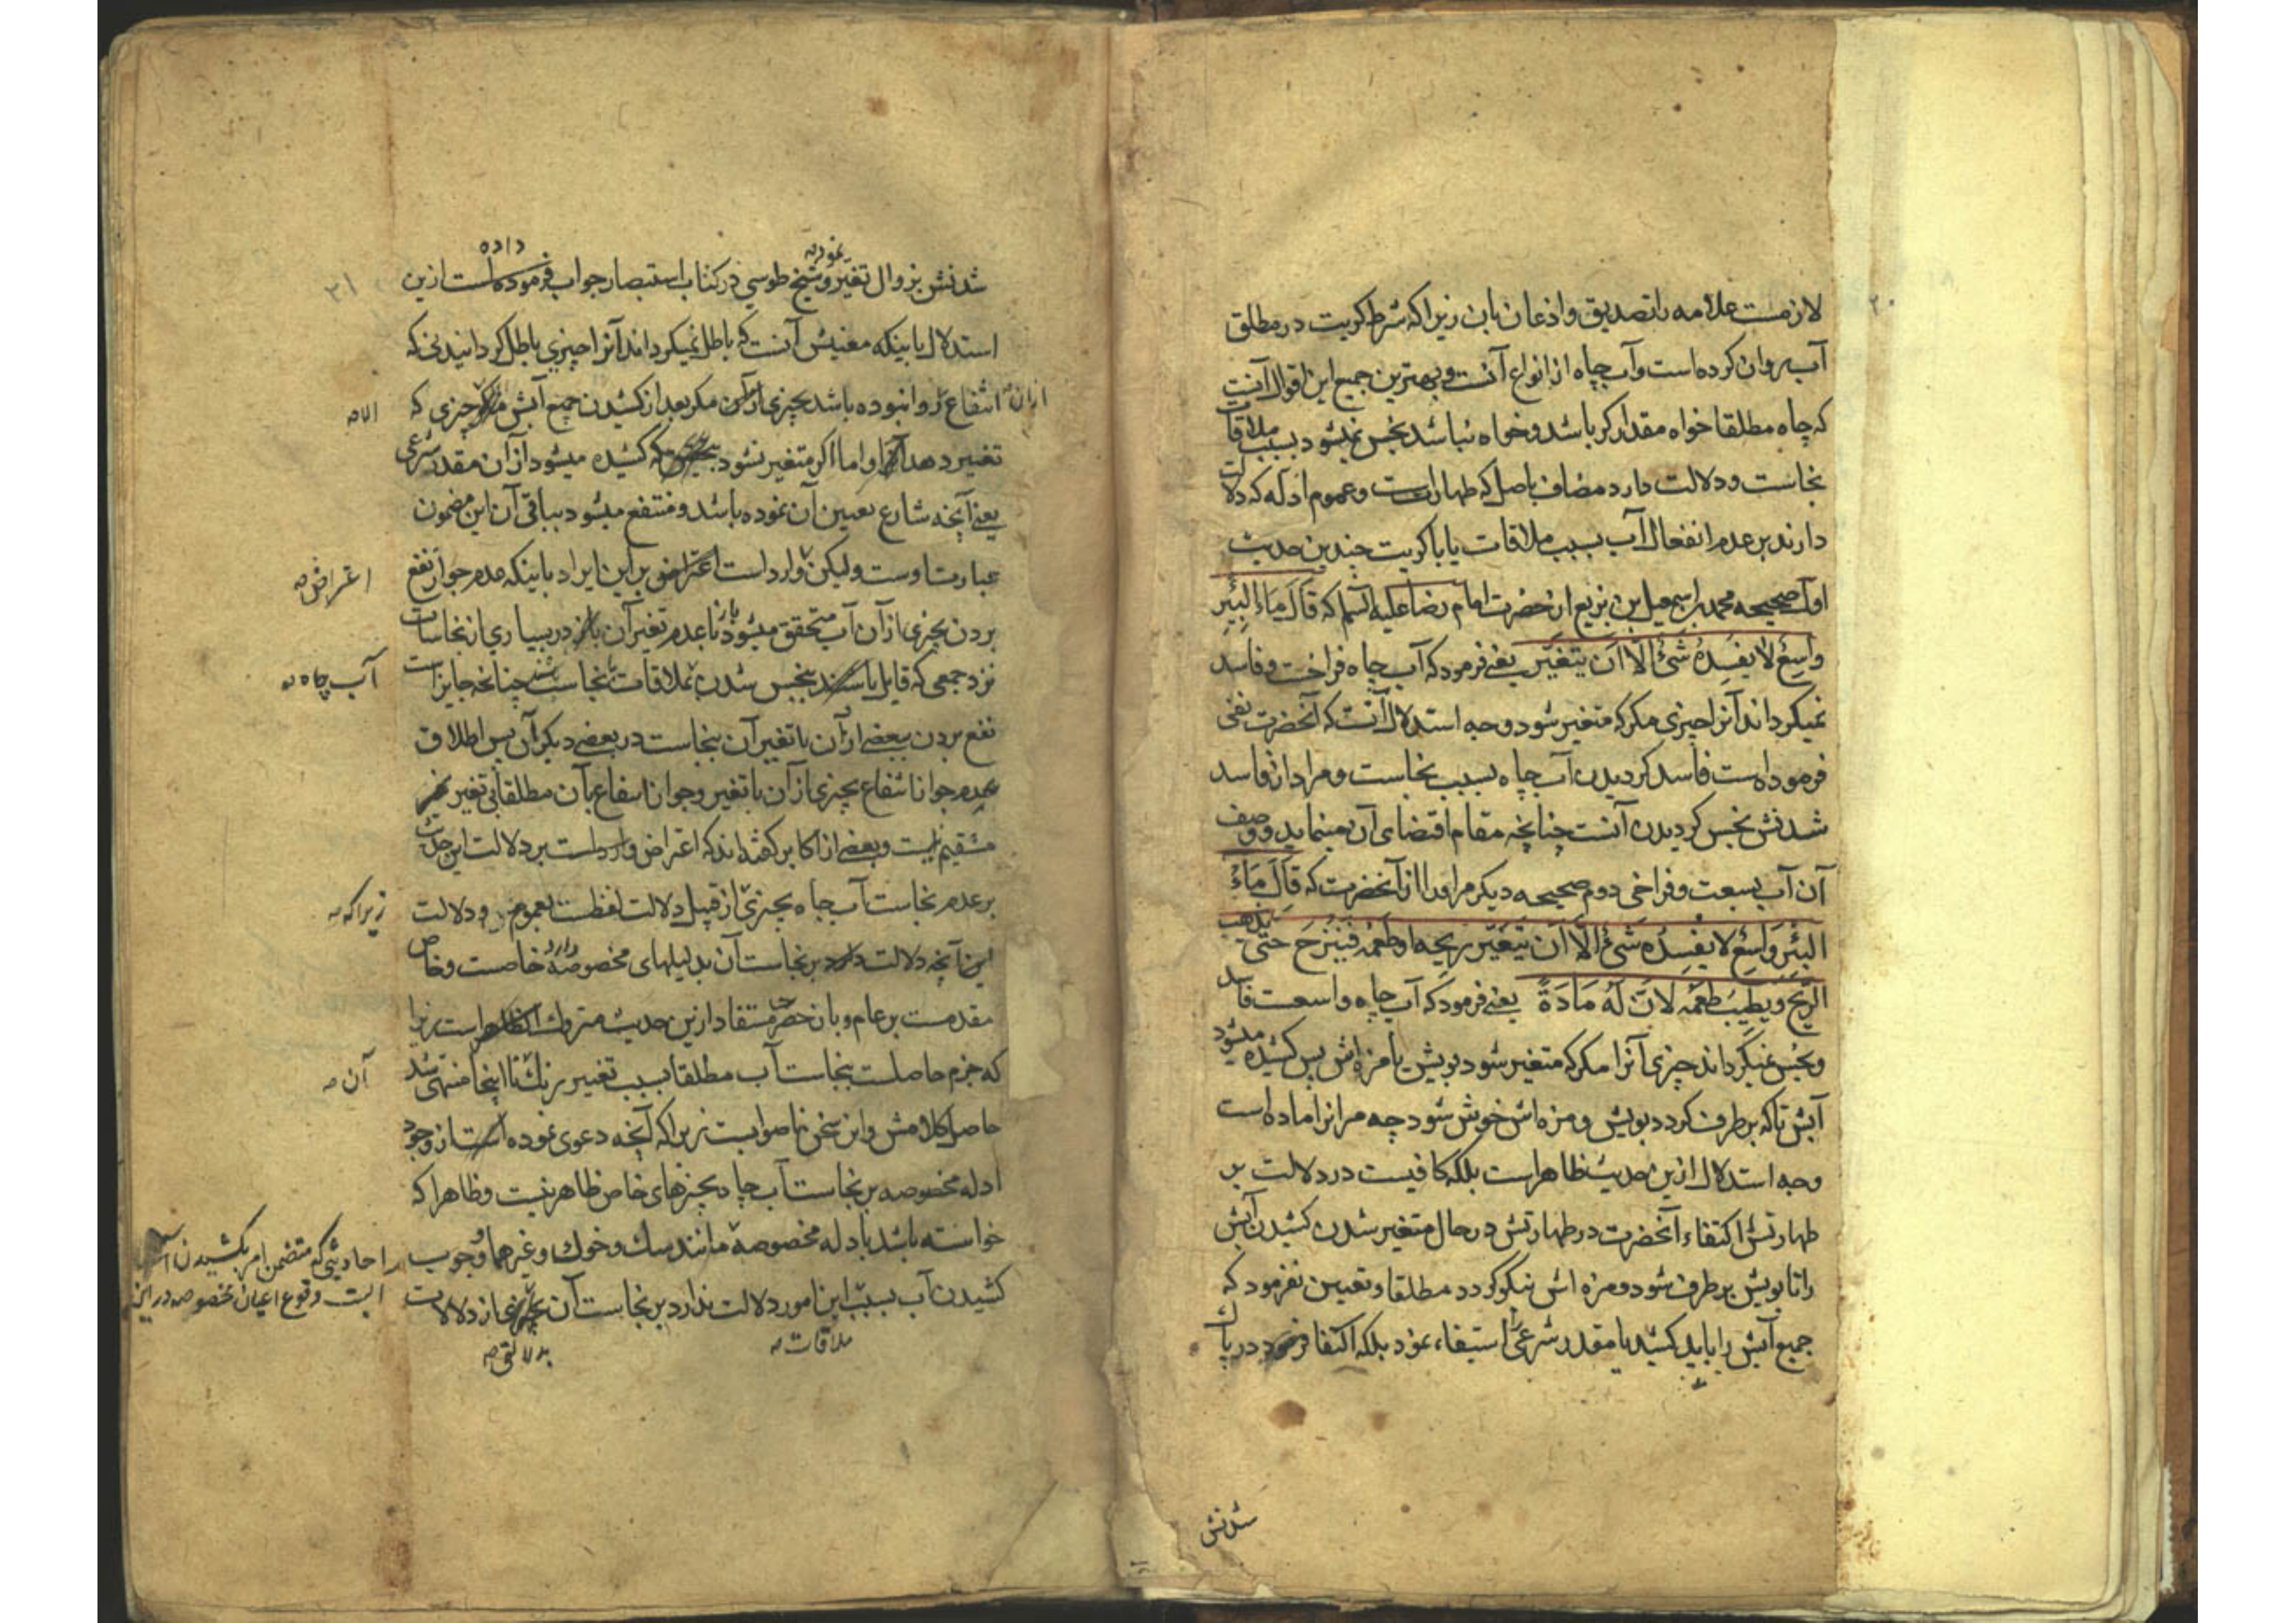 لازمست علامه را تصدیق و اذعان بان زیرا که شرط کریت در مطلق
آب روان کرده است و آب چاه از انواع آنست و بهترین جمیع این اقوال آنست
که چاه مطلقا خواه مقدار کر باشد و خواه نباشد نجس نمیشود بسبب ملاقات
نجاست و دلالت دارد مضاف باصل که طهارتست و عموم ادله که دلالت
دارند بر عدم انفعال آب بسبب ملاقات یا با کریت چندین حدیث
اول صحیحه محمد بن اسمعیل بن بزیع از حضرت امام رضا علیه السلم که قال ماء البئر
واسع لا یفسده شئ الا ان یتغیر یعنی فرمود که آب چاه فراخست و فاسد
نمیکرداند آنرا چیزی مکر که متغیر شود وجه استدلال آنست که آنحضرت نفی
فرموده است فاسد کردیدن آب چاه بسبب نجاست و مراد از فاسد
شدنش نجس کردیدن آنست چنانچه مقام اقتضای آن مینماید و وصف
آن آب بسعت و فراخی دوم صحیحه دیکر مر اورا از آنحضرت که قال ماء
البئر واسع لا یفسده شئ الا ان یتغیر ریحه او طعمه فینزح حتی یذهب
الریح و یطیب طعمه لان له مادة یعنی فرمود که آب چاه واسعت فاسد
و نجس نمیکرداند چیزی آنرا مکر که متغیر شود بویش یا مزه اش پس کشیده میشود
آبش تا که برطرف کردد بویش و مزه اش خوش شود چه مر انرا ماده است
وجه استدلال ازین حدیث ظاهر است بلکه کافیست در دلالت بر
طهارتش اکتفاء آنحضرت در طهارتش در حال متغیر شدن کشیدن آبش
را تا بویش برطرف شود و مزه اش نیکو کردد مطلقا و تعیین نفرمود که
جمیع آبش را باید کشید یا مقدر شرعی را استیفاء نمود بلکه اکتفا فرمود در پاک
شدنش
شدنش بزوال تغیر و شیخ طوسی در کتاب استبصار جواب فرموده است ازین
داده
استدلال باینکه معنیش آنست که باطل نمیکرداند آنرا چیزی باطل کردانیدنی که
انتفاع روا نبوده باشد بچیزی از آن مکر بعد از کشیدن جمیع آبش چیزی که
ازان
الا
تغییر دهد او اما اکر متغیر نشود که کشیده میشود از آن مقدر شرعی
یعنی آنچه شارع تعیین آن نموده باشد و منتفع میشود بباقی آن این مضمون
عبارت اوست ولیکن وارد است بر این ایراد باینکه عدم جواز نفع
اعتراض
بردن بچیزی از آن آب متحقق میشود با عدم تغیر آن در بسیاری از نجاسات
نزد جمعی که قایل باشند بنجس شدن بملاقات نجاست چنانچه جایز است
آب چاه
نفع بردن ببعضی از آن با تغیر آن بنجاست در بعضی دیکر آن پس اطلاق
عدم جواز انتفاع بچیزی از آن با تغیر و جواز انتفاع بآن مطلقا بی تغیر
مستقیم نیست و بعضی از اکابر کفته اند که اعتراض وارد است بر دلالت این حدیث
بر عدم نجاست آب چاه بچیزی از قبیل دلالت لفظست بعموم و دلالت
زیرا که
این آنچه دلالت دارد بر نجاست آن بدلیلهای مخصوصه خاصست و خاص
مقدمست بر عام و بان حصر مستفاد ازین حدیث متروک است زیرا
که جزم حاصلست بنجاست آب مطلقا بسبب تغییر رنک تا اینجا منتهی شد
آن
حاصل کلامش و این سخن ناصوابست زیرا که آنچه دعوی نموده از وجود
ادله مخصوصه بر نجاست آب چاه بچیزهای خاص ظاهر نیست و ظاهرا که
خواسته باشد بادله مخصوصه مانند سک و خوک و غیر هما وجوب
احادیثی که متضمن امر بکشیدن آب
کشیدن آب بسبب این امور دلالت ندارد بر نجاست آن
است وقوع اعیان مخصوصه در این
ملاقات
بدلالتی